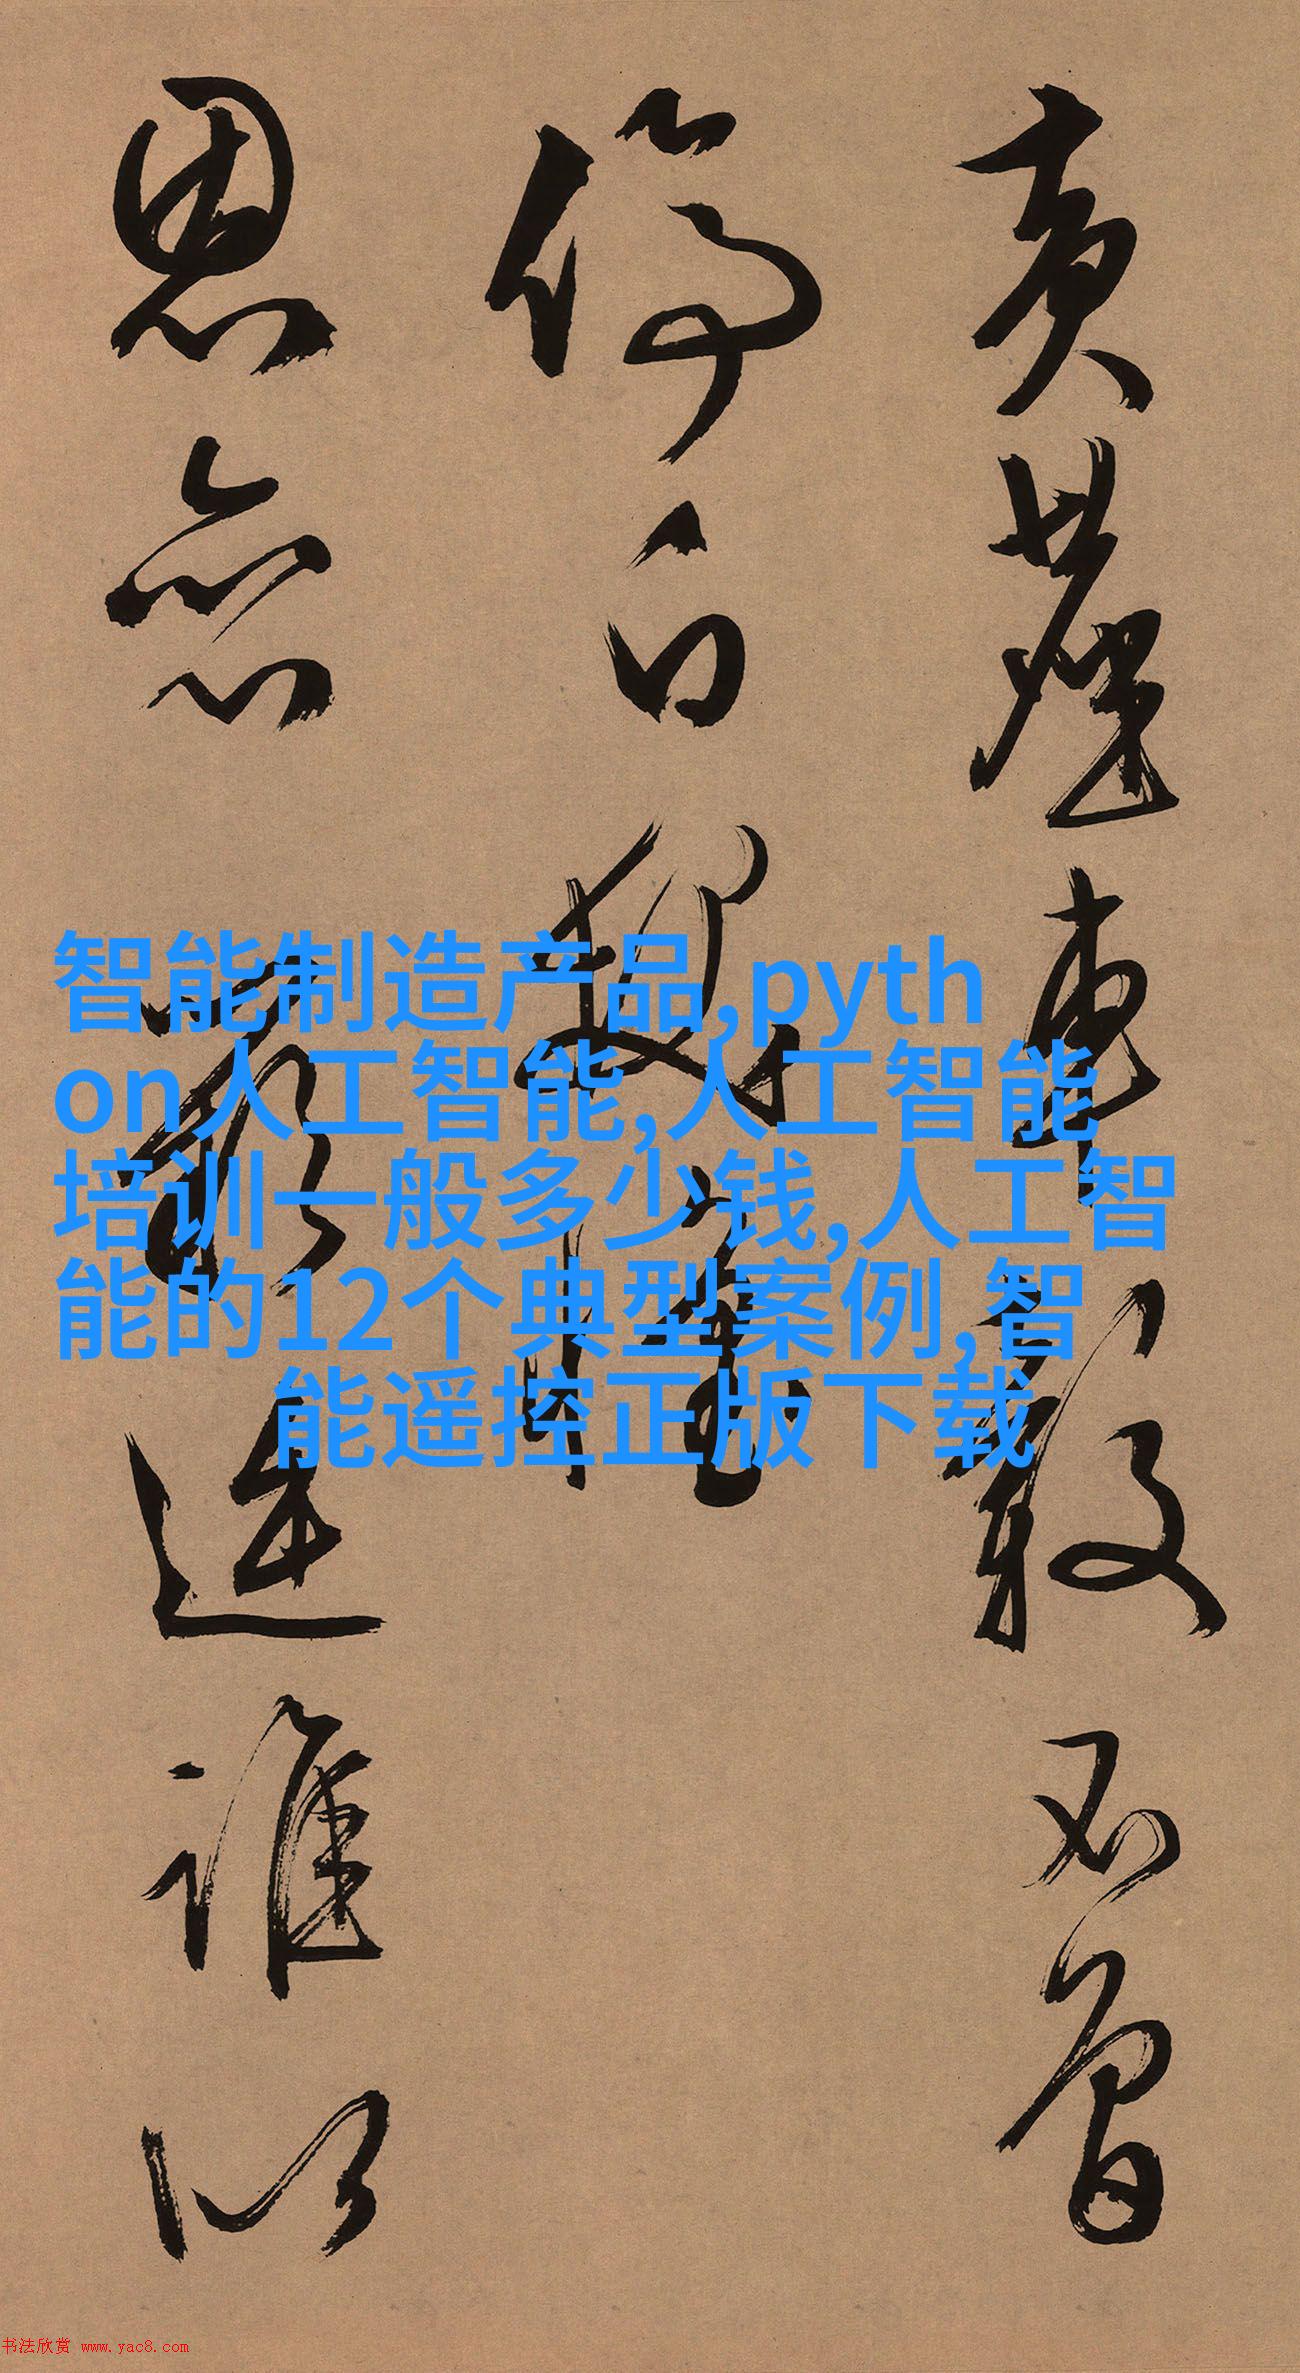 黄塵車轂不曾
停白髮
恩誰以
智能制造产品,pyth
on人工智能,人工智能
培训一般多少钱,人工智
能的12个典型案例,智
能遥控正版下载
书法欣赏 www.yac8.com